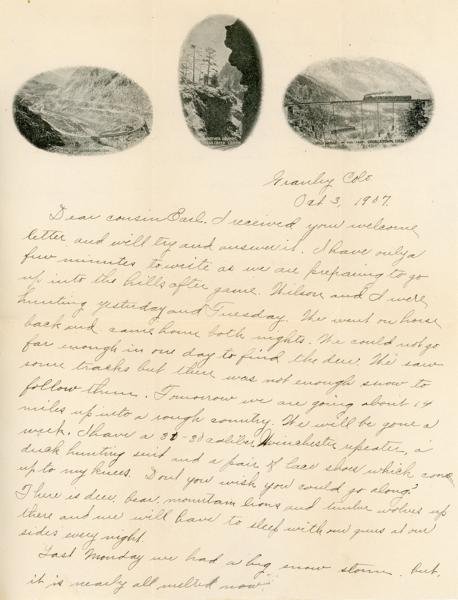 Granby Colo
Oct 3, 1907.
Dear cousin Earl. I received you welcome
letter and will try and answer it. I have only a
few minutes to write as we are preparing to go
up into the hills after game. Wilson and I were
hunting yesterday and Tuesday. We went on horse
back and came home both nights. We could not go
far enough in one day to find the deer. We saw
some tracks but there was not enough snow to
follow them. Tomorrow we are going about 14
miles up into a rough country. We will be gone a
week. I have a caliber Winchester repeater, a
duck hunting suit and a pair of lace shoes which come
up to my knees. Dont you wish you could go along?
There is deer, bear, mountain lions and timber wolves up
there and we will have to sleep with our guns at our
sides every night.
Last Monday we had a big snow storm. but,
it is nearly all melted now.